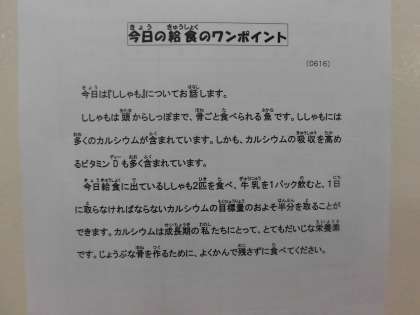 今日の給食のワンポイント
(0616)
今日は『ししゃも』についてお話します。
ししゃもは頭からしっぽまで、骨ごと食べられる魚です。ししゃもには
多くのカルシウムが含まれています。しかも、カルシウムの吸収を高め
るビタミンDも多く含まれています。
今日給食に出ているししゃも2匹を食べ、牛乳を1パック飲むと、1日
に取らなければならないカルシウムの目標量のおよそ半分を取ることが
できます。カルシウムは成長期の私たちにとって、とてもだいじな栄養素
です。じょうぶな骨を作るために、よくかんで残さずに食べてください。